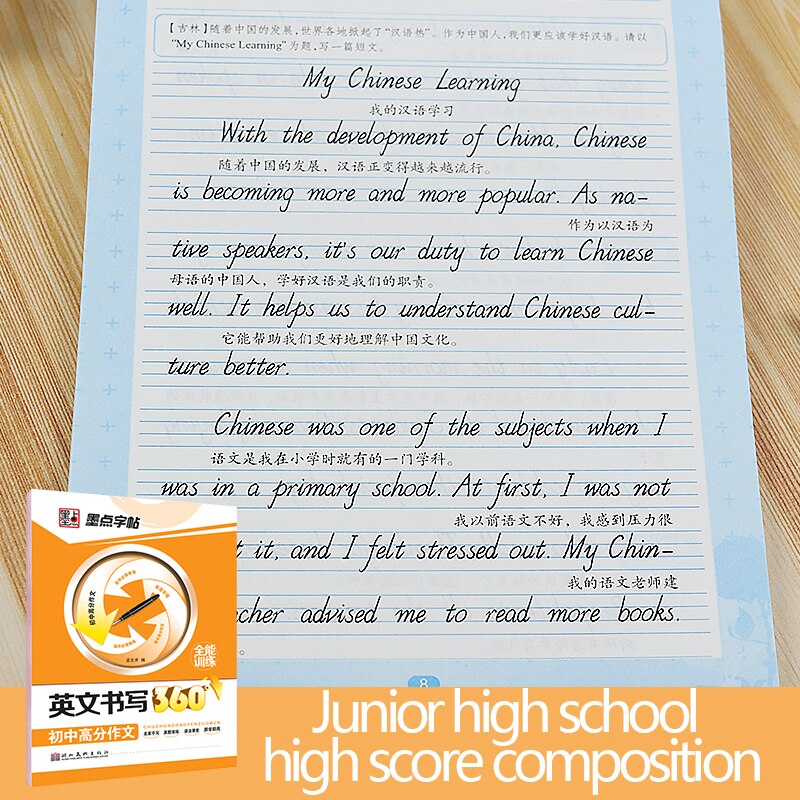 【吉林】随着中国的发展,世界各地掀起了“汉语热”。作为中国人,我们更应该学好汉语。请以
“My Chinese Learning”为题,写一篇短文。
My Chinese Learning
我的汉语学习
With the development of China, Chinese
随着中国的发展，汉语正变得越来越流行。
is becoming more and more popular. As na-
作为以汉语为
tive speakers, it's our duty to learn Chinese
母语的中国人，学好汉语是我们的职责。
well. It helps us to understand Chinese cul-
它能帮助我们更好地理解中国文化。
ture better.
Chinese was one of the subjects when I
语文是我在小学时就有的一门学科。
was in a primary school. At first, I was not
我以前语文不好，我感到压力很
t it, and I felt stressed out. My Chin-
我的语文老师建
cher advised me to read more books.
。
8
墨点字帖
初中高分作文
全能
训练
英文书写360°
CHUZHONGGAOFENZUOWEN
初中高分作文
Junior high school
high score composition